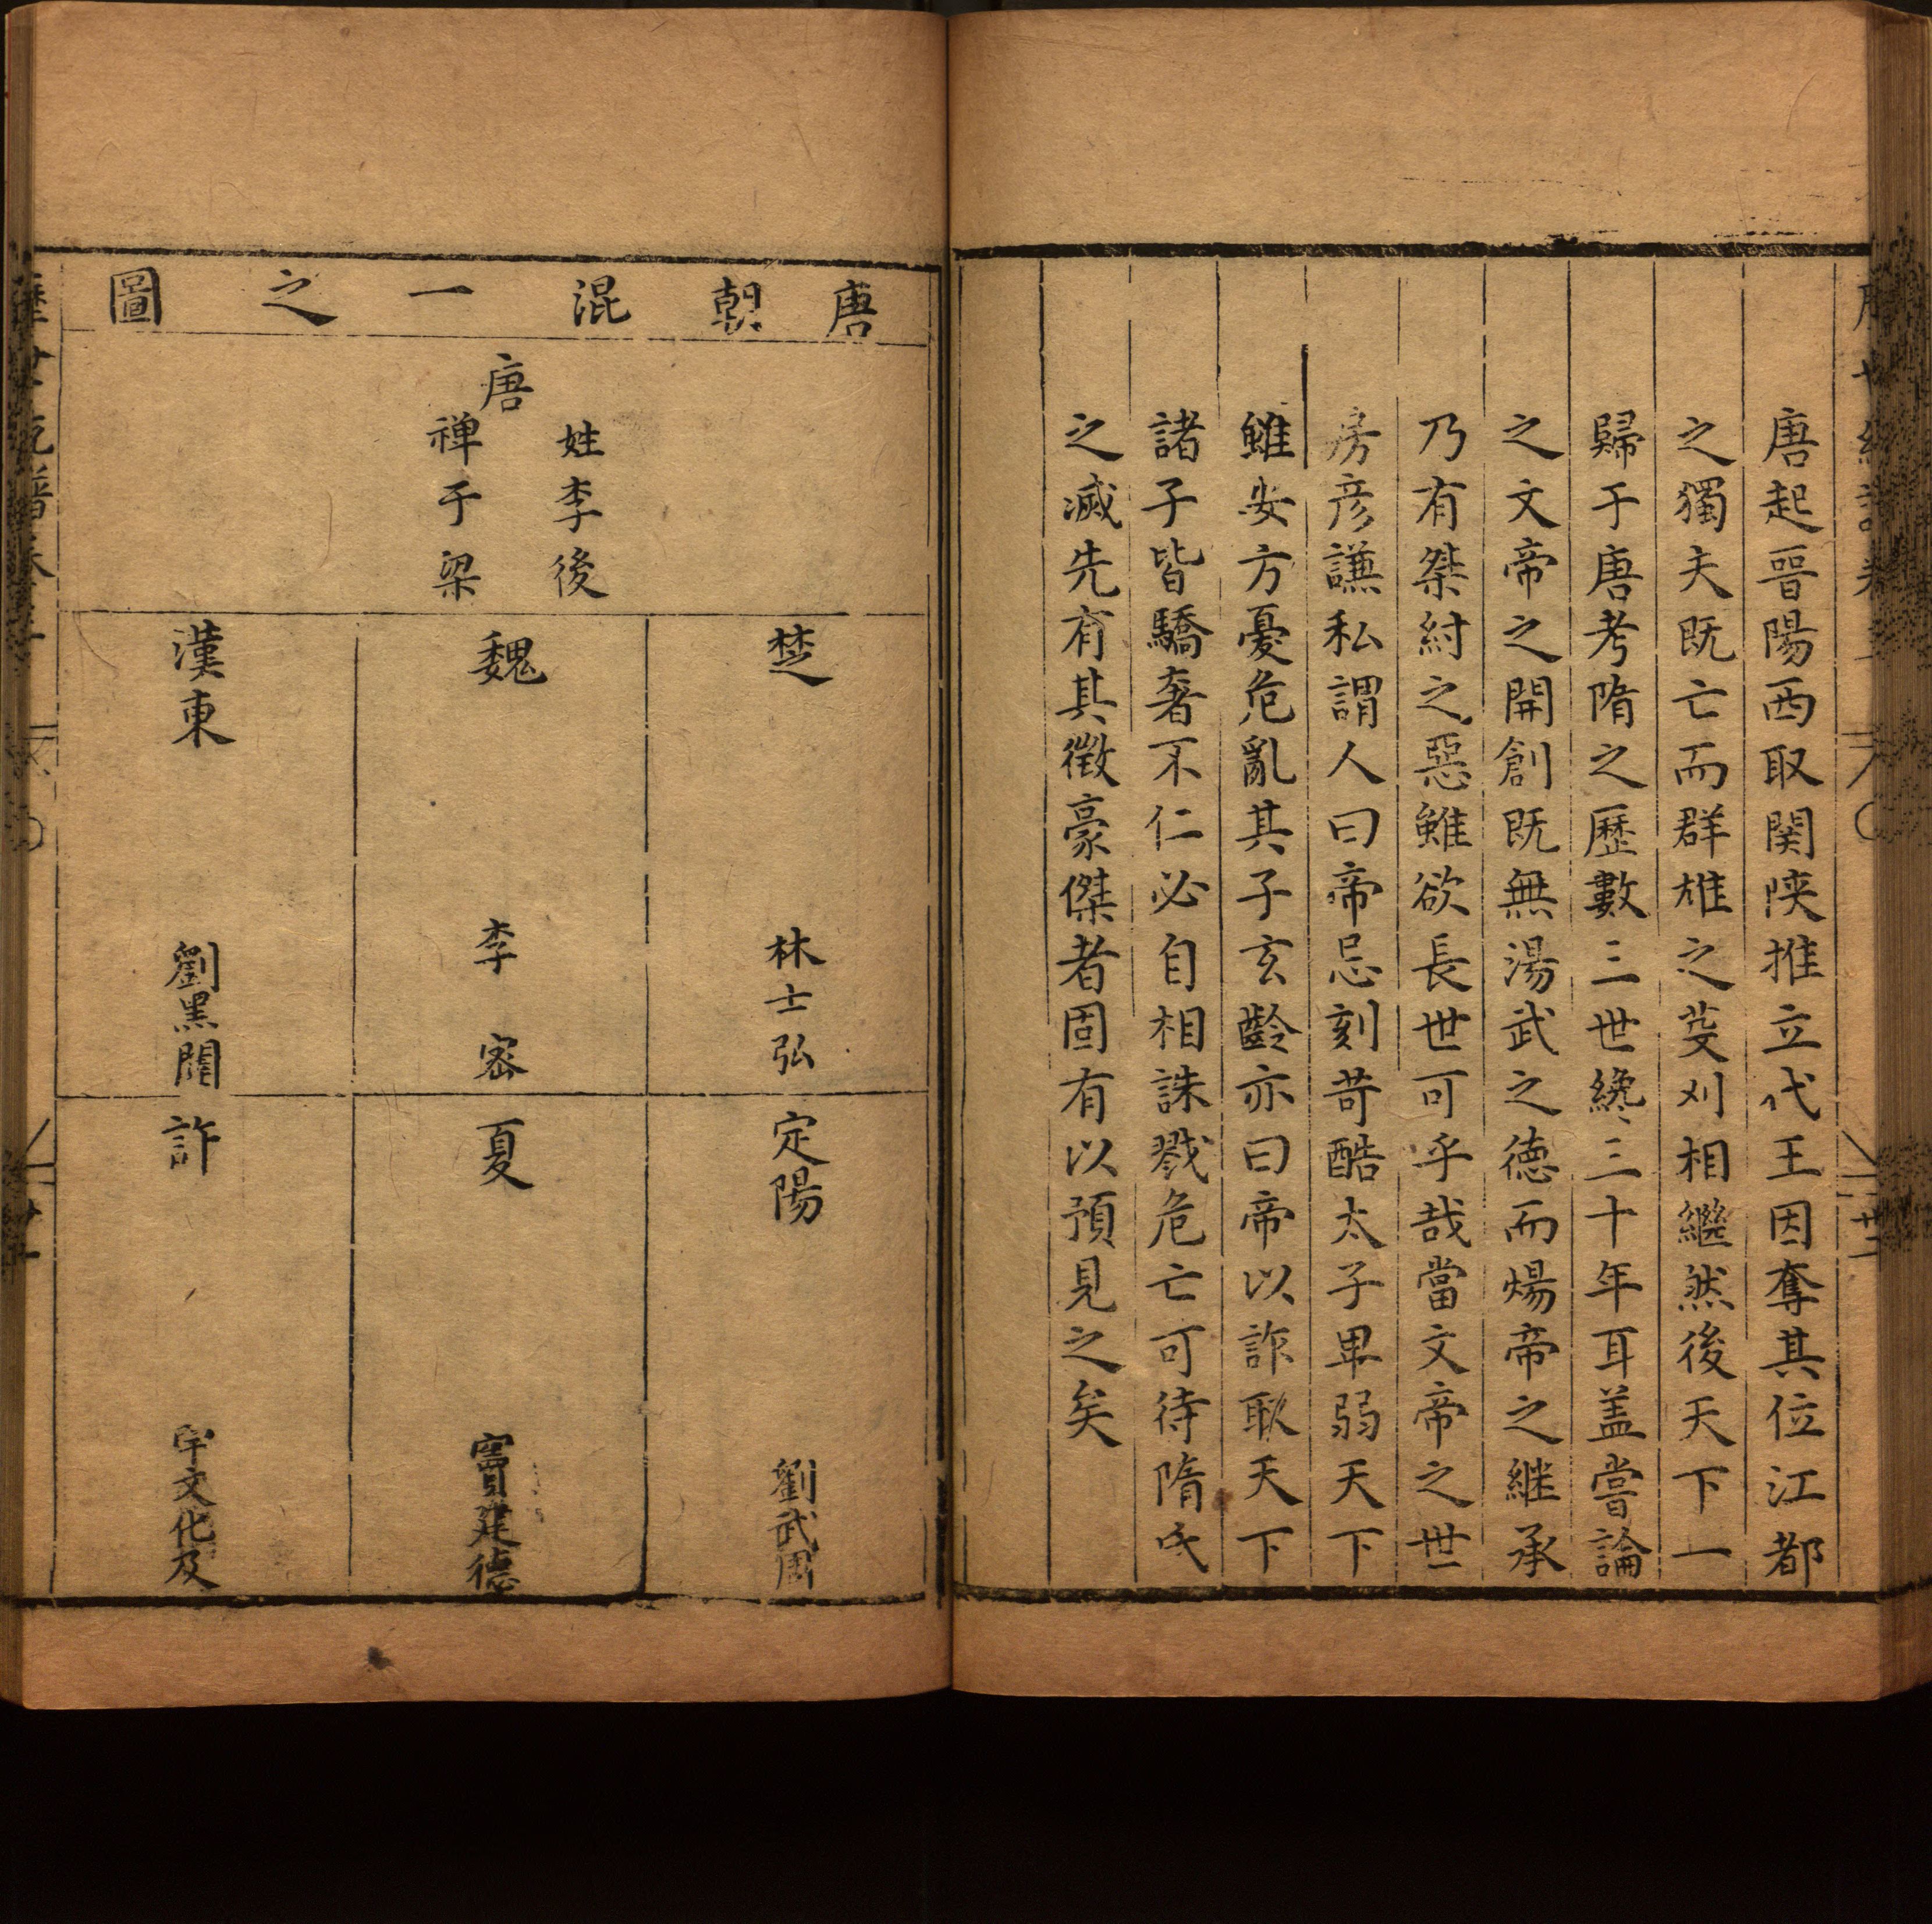 唐起晉陽西取関陝推立代王因奪其位江都
之獨夫既亡而群雄之芟刈相繼然後天下一
歸于唐考隋之歷數三世纔三十年耳盖嘗論
之文帝之開創既無湯武之德而煬帝之継承
乃有桀紂之惡雖欲長世可乎哉當文帝之世
房彦謙私謂人曰帝忌刻苛酷太子卑弱天下
雖安方憂危亂其子玄齡亦曰帝以詐取天下
諸子皆驕奢不仁必自相誅戮危亡可待隋氏
之滅先有其徵豪傑者固有以預見之矣
唐朝混一之圖
唐
姓李後
禅于梁
楚
林士弘
魏
李密
漢東
劉黑闥
定陽
劉武周
夏
竇建德
許
宇文化及